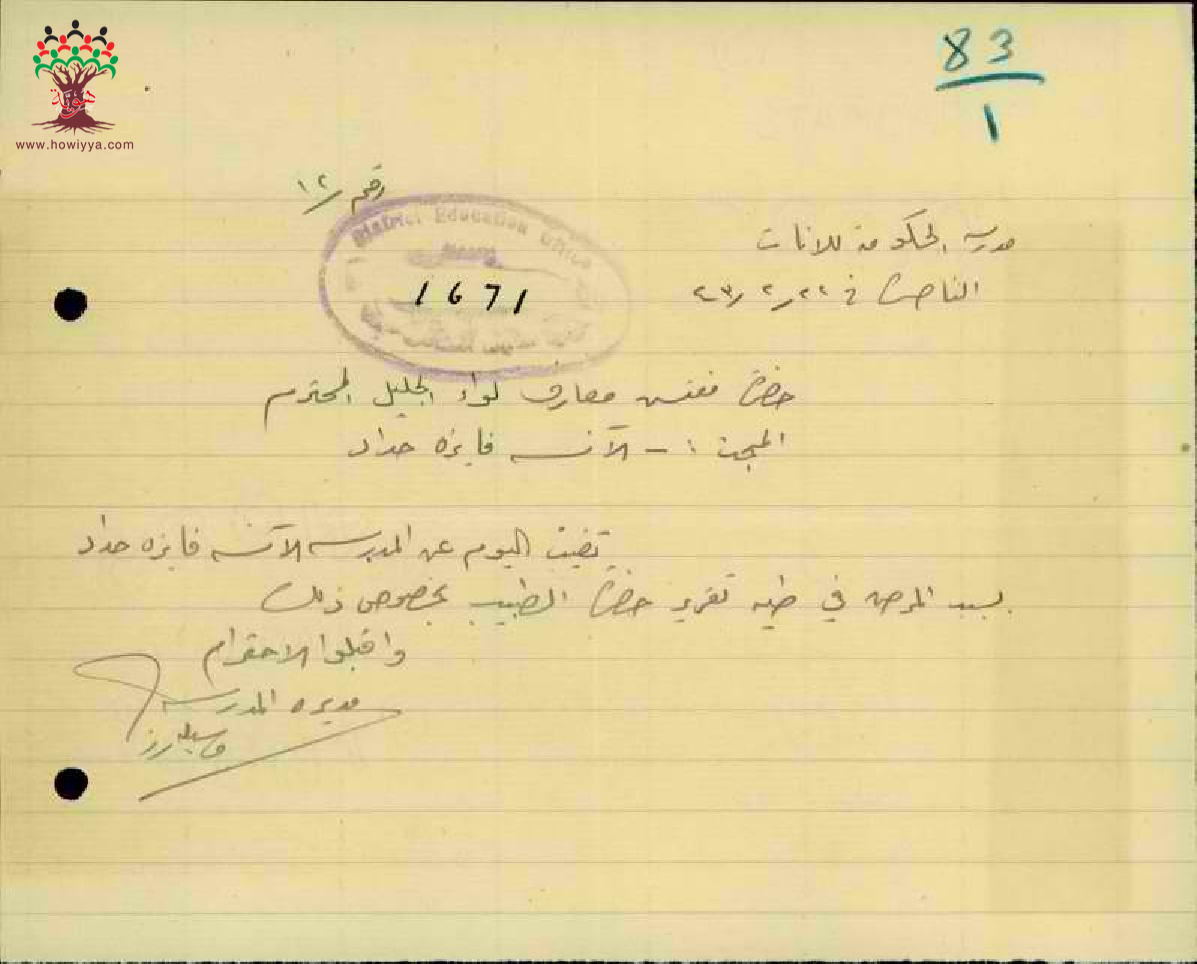 83
1
هوية
www.howiyya.com
رقم ١٢
District Education Office
1671
مدرسة الحكومة للاناث
الناصرة في ٢٢ر٢ر٤٣
حضرة مفتش معارف لواء الجليل المحترم
المبحث :- الآنسه فايزه حداد
تغيبت اليوم عن المدرسه الآنسه فايزه حداد
بسبب المرض في طيه تقرير حضرة الطبيب بخصوص ذلك
واقبلوا الاحترام
مديره المدرسه